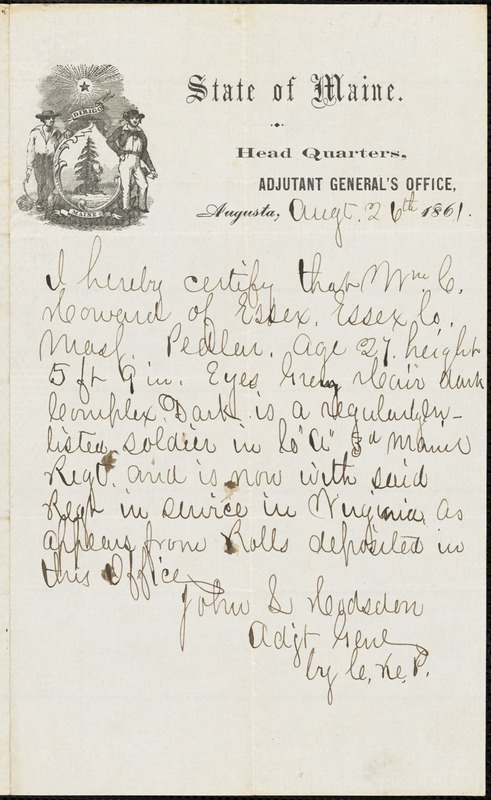 State of Maine.
DIRIGO
MAINE
Head Quarters,
ADJUTANT GENERAL'S OFFICE,
Augusta, Augt. 26th 1861.
I hereby certify that Wm C.
Howard of Essex. Essex Co.
Mass. Pedlar. Age 27. height
5 ft 9 in. Eyes Grey Hair dark
Complex. Dark is a regularly En-
listed soldier in Co "A" 3d Maine
Regt. and is now with said
Regt in service in Virginia, as
appears from Rolls deposited in
this Office
John L Hodsdon
Adjt Genl
by C.